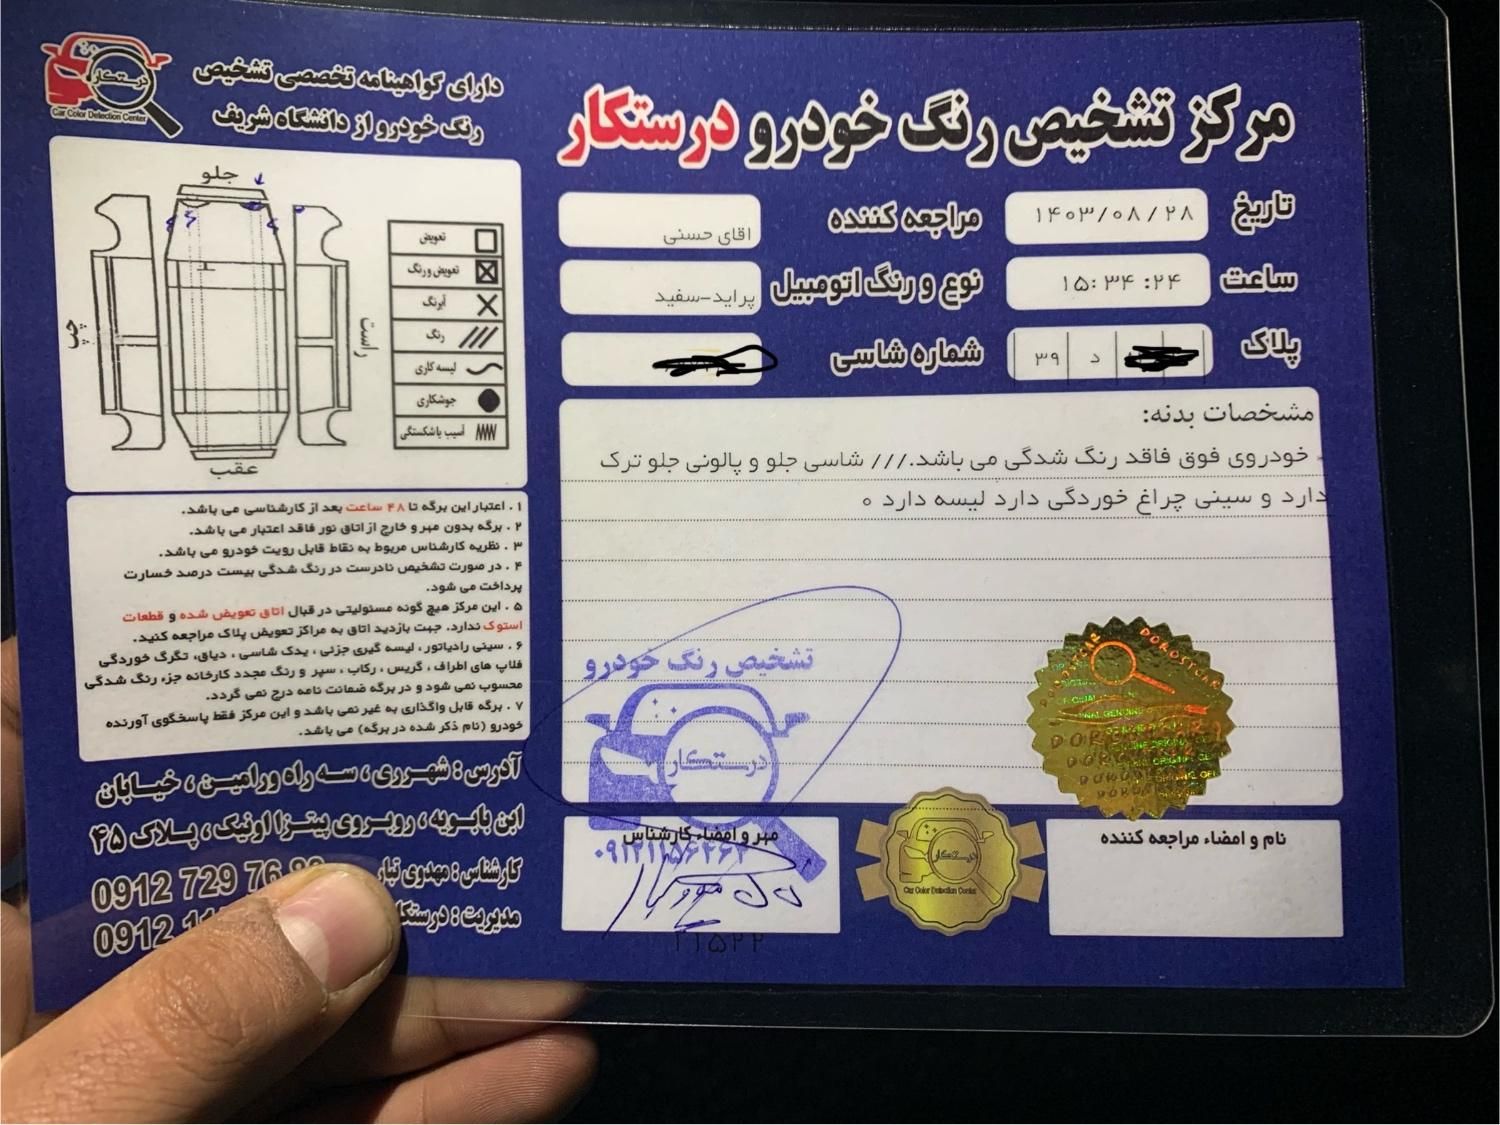 مرکز تشخیص رنگ خودرو درستکار
تاریخ
۱۴۰۳/۰۸/۲۸
مراجعه کننده
اقای حسنی
ساعت
۱۵:۳۴:۲۴
نوع و رنگ اتومبیل
پراید-سفید
پلاک
د ۳۹
شماره شاسی
مشخصات بدنه:
خودروی فوق فاقد رنگ شدگی می باشد./// شاسی جلو و پالونی جلو ترک
دارد و سینی چراغ خوردگی دارد لیسه دارد ه
تشخیص رنگ خودرو
درستکار
مهر و امضاء کارشناس
۲۱۵۲۲
درستکار
Car Color Detection Center
DOROSTCAR
نام و امضاء مراجعه کننده
درستکار
Car Color Detection Center
دارای گواهینامه تخصصی تشخیص
رنگ خودرو از دانشگاه شریف
جلو
چپ
راست
عقب
تعویض
تعویض ورنگ
آبرنگ
رنگ
لیسه کاری
جوشکاری
آسیب یا شکستگی
۱ . اعتبار این برگه تا ۴۸ ساعت بعد از کارشناسی می باشد.
۲ . برگه بدون مهر و خارج از اتاق نور فاقد اعتبار می باشد.
۳ . نظریه کارشناس مربوط به نقاط قابل رویت خودرو می باشد.
۴ . در صورت تشخیص نادرست در رنگ شدگی بیست درصد خسارت
پرداخت می شود.
۵ . این مرکز هیچ گونه مسئولیتی در قبال اتاق تعویض شده و قطعات
استوک ندارد. جهت بازدید اتاق به مراکز تعویض پلاک مراجعه کنید.
۶ . سینی رادیاتور ، لیسه گیری جزئی ، یدک شاسی ، دیاق، تگرگ خوردگی
فلاپ های اطراف ، گریس ، رکاب ، سپر و رنگ مجدد کارخانه جزء رنگ شدگی
محسوب نمی شود و در برگه ضمانت نامه درج نمی گردد.
۷ . برگه قابل واگذاری به غیر نمی باشد و این مرکز فقط پاسخگوی آورنده
خودرو (نام ذکر شده در برگه) می باشد.
آدرس : شهرری ، سه راه ورامین ، خیابان
ابن بابویه ، روبروی پیتزا اونیک ، پلاک ۴۵
کارشناس : مهدوی تبار 0912 729 76
مدیریت : درستکار 0912